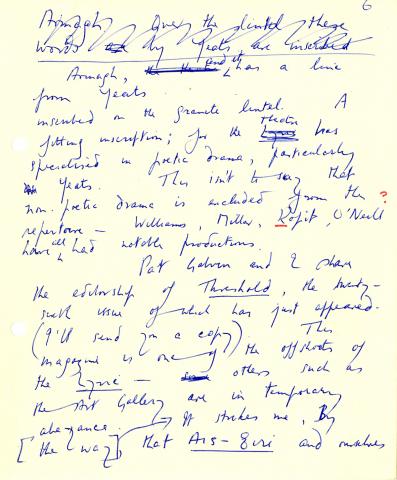 6
Armagh Over the lintel these
words by Yeats, are inscribed
Armagh, and it has a line
from Yeats
inscribed on the granite lintel. A
fitting inscription; for the Lyric Theatre has
specialised in poetic drama, particularly
Yeats. This isn't to say that
non-poetic drama is excluded from the
repertoire — Williams, Miller, Kopit, O'Neill ?
have all had notable productions.
Pat Galvin and I share
the editorship of Threshold, the twenty-
sixth issue of which has just appeared.
(I'll send you a copy) This
magazine is one of the offshoots of
the Lyric — others such as
the Art Gallery are in temporary
abeyance. It strikes me, By
[the way], that Ais-Eiri and ourselves